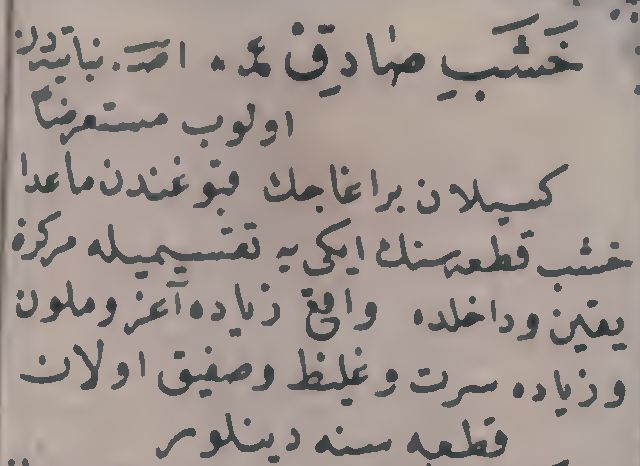 خَشَبِ صَادِق عمـ ٥ امـ . نباتیدن
اولوب مستعرضاً
کسیلان بر اغاجك قبوغندن ماعدا
خشب قطعه‌سنك ایکی یه تقسیمیله مرکزه
یقین وداخلده واقع زیاده آغز وملون
وزیاده سرت وغلیظ وصفیق اولان
قطعه سنه دینلور